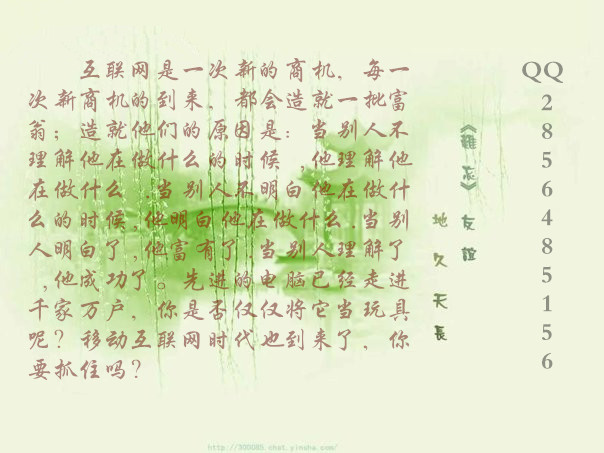 互联网是一次新的商机，每一
次新商机的到来，都会造就一批富
翁；造就他们的原因是：当别人不
理解他在做什么的时候，他理解他
在做什么.当别人不明白他在做什
么的时候,他明白他在做什么.当别
人明白了,他富有了.当别人理解了
,他成功了。先进的电脑已经走进
千家万户，你是否仅仅将它当玩具
呢？移动互联网时代也到来了，你
要抓住吗？
友谊
地久天長
QQ
2
8
5
6
4
8
5
1
5
5
6